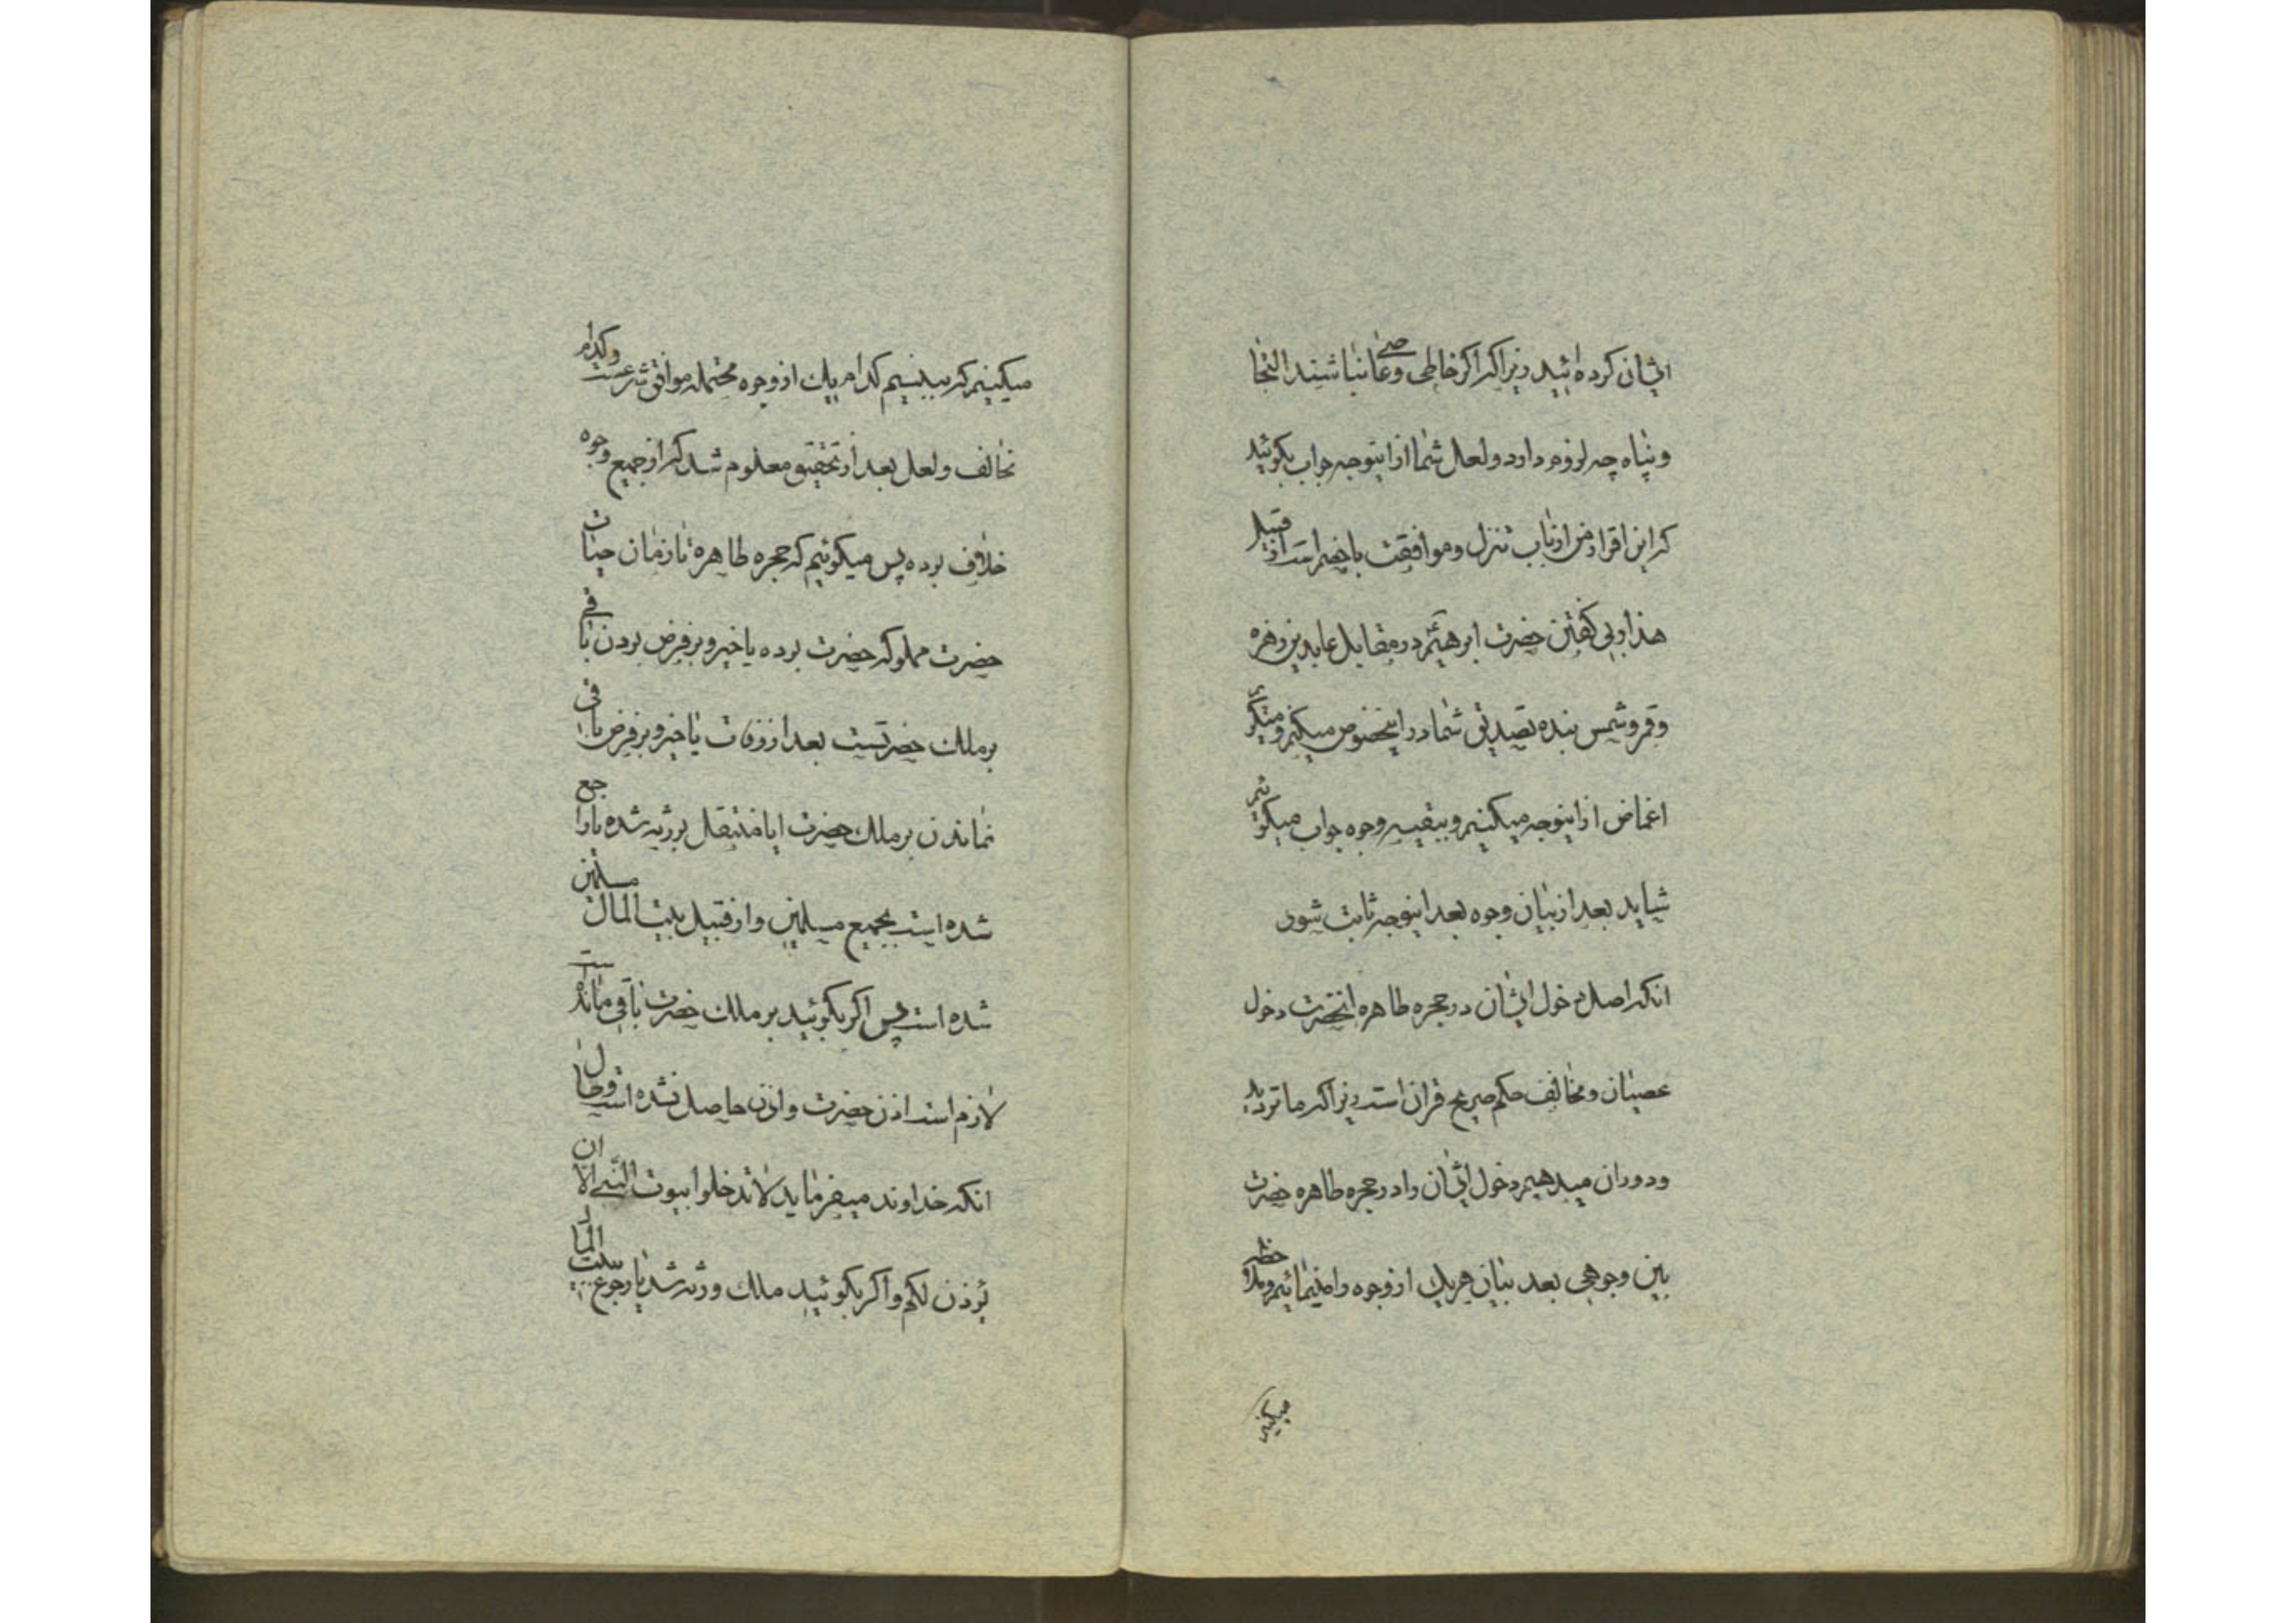 ایشان کرده‌اید زیرا که اگر خاطی و عاصی نباشند التجا
و پناه چه لزوم دارد و لعل شما از اینوجه جواب بگوئید
که این اقرار من از باب تنزل و موافقت با خصم است از قبیل
هذا ربی گفتن حضرت ابرهیم در مقابل عابدین زهره
و قمر و شمس بنده تصدیق شما در اینخصوص میکنم و میگوی
اغماض از اینوجه میکنیم و ببقیه وجوه جواب میگوئیم
شاید بعد از بیان وجوه بعد اینوجه ثابت شود
انکه اصل دخول ایشان در حجره طاهره انحضرت دخول
عصیان و مخالف حکم صریح قران است زیرا که ما تردید
و دوران میدهیم دخول ایشان را در حجره طاهره حضرت
بین وجوهی بعد بیان هریک از وجوه را مینمائیم و ملاحظه
میکنیم
میکنیم که ببینیم کدام یک از وجوه محتمله موافق شرعست و کدام
مخالف و لعل بعد از تحقیق معلوم شد که از جمیع وجوه
خلاف بوده پس میگوئیم که حجره طاهره تا زمان حیات
حضرت مملوکه حضرت بوده یا خیر و بر فرض بودن باقی
بر ملک حضرتست بعد از وفات یا خیر و بر فرض باقی
نماندن بر ملک حضرت ایا منتقل بورثه شده یا راجع
شده است بجمیع مسلمین و از قبیل بیت المال مسلمین
شده است پس اگر بگوئید بر ملک حضرت باقی مانده است
لازم است اذن حضرت و اذن حاصل نشده است و حال
انکه خداوند میفرماید لا تدخلوا بیوت النبی الا ان
یؤذن لکم و اگر بگوئید ملک ورثه شد یا رجوع ببیت المال